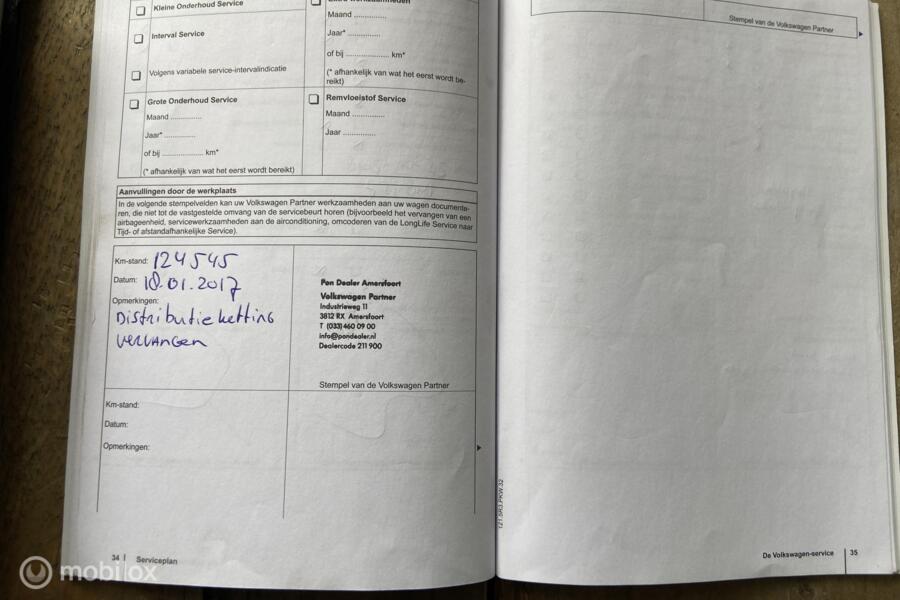 Kleine Onderhoud Service
Interval Service
Volgens variabele service-intervalindicatie
Maand ..............
Jaar* ..............
of bij .................. km*
(* afhankelijk van wat het eerst wordt be-
reikt)
Grote Onderhoud Service
Maand .............
Jaar* .............
of bij ................. km*
(* afhankelijk van wat het eerst wordt bereikt)
Remvloeistof Service
Maand ..............
Jaar ..............
Aanvullingen door de werkplaats
In de volgende stempelvelden kan uw Volkswagen Partner werkzaamheden aan uw wagen documente-
ren, die niet tot de vastgestelde omvang van de servicebeurt horen (bijvoorbeeld het vervangen van een
airbageenheid, servicewerkzaamheden aan de airconditioning, omcoderen van de LongLife Service naar
Tijd- of afstandafhankelijke Service).
Km-stand: 124545
Datum: 10.01.2017
Opmerkingen:
Distributieketting
vervangen
Pon Dealer Amersfoort
Volkswagen Partner
Industrieweg 11
3812 RX Amersfoort
T (033) 460 09 00
info@pondealer.nl
Dealercode 211 900
Stempel van de Volkswagen Partner
Km-stand:
Datum:
Opmerkingen:
34 Serviceplan
Stempel van de Volkswagen Partner
121.5R3.PKW.32
De Volkswagen-service 35
mobilox